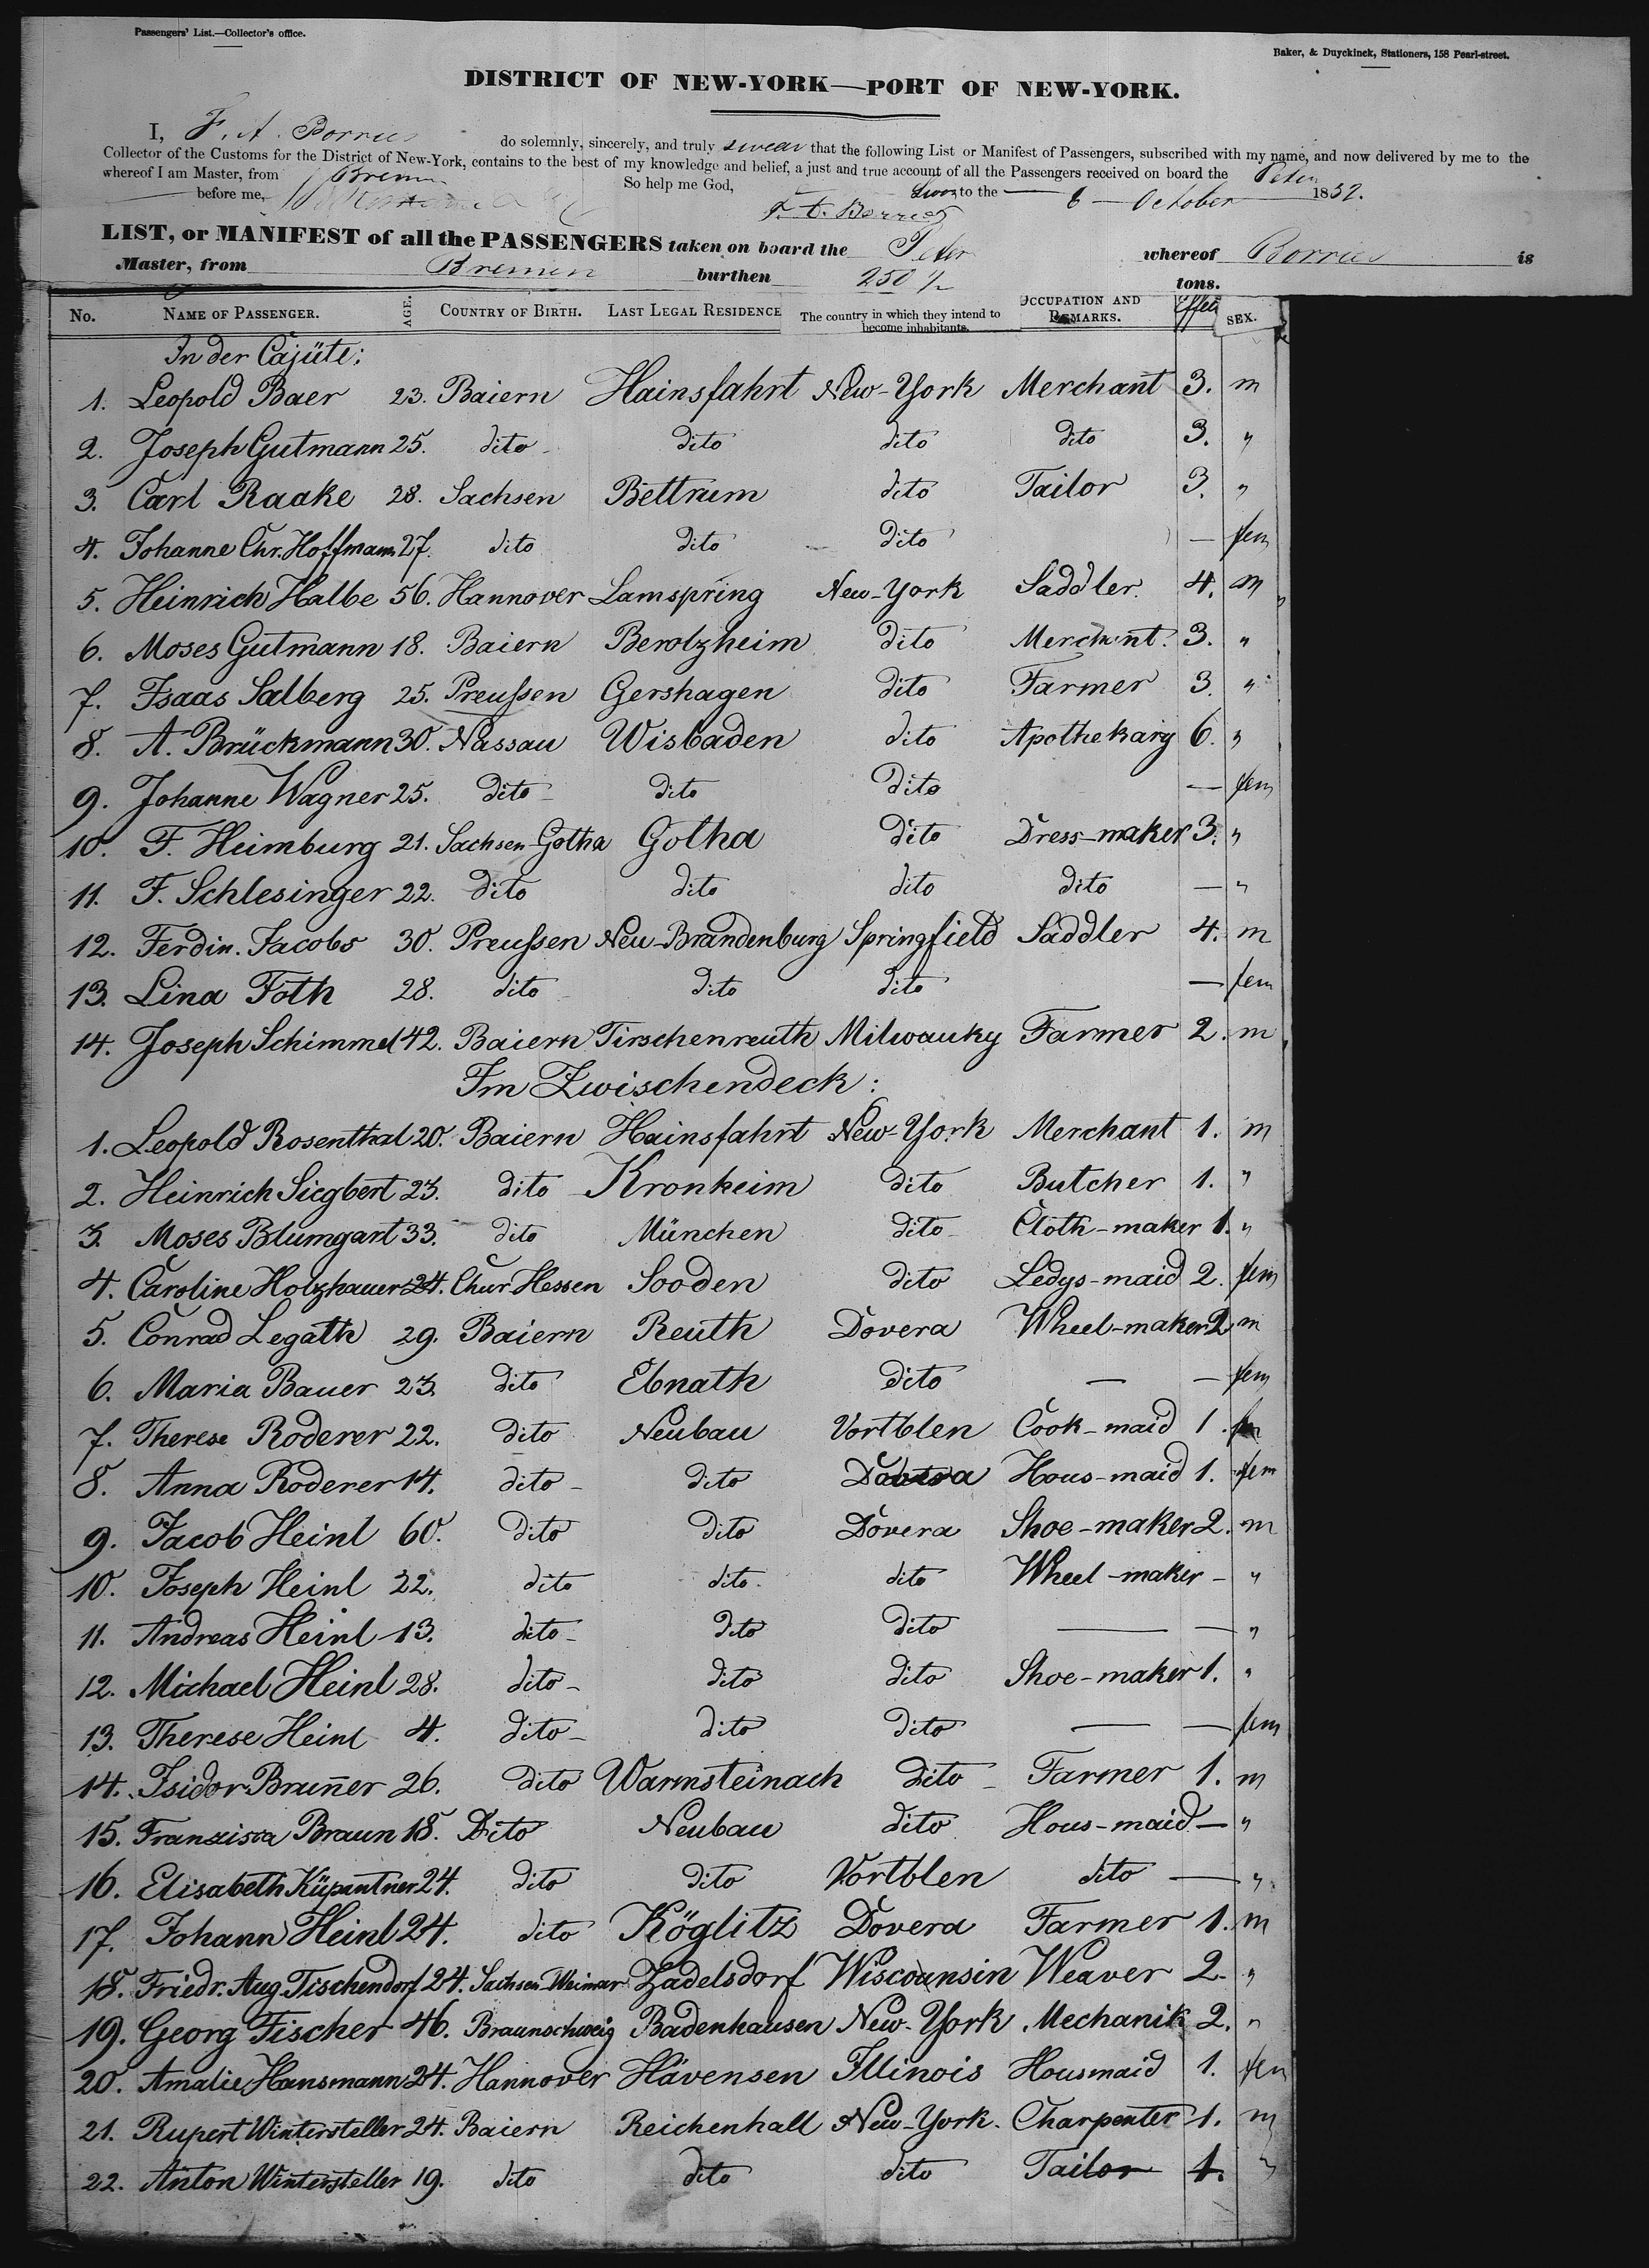 Passengers' List.—Collector's office.
Baker, & Duyckinck, Stationers, 158 Pearl-street.
DISTRICT OF NEW-YORK—PORT OF NEW-YORK.
I, F. A. Borries do solemnly, sincerely, and truly swear that the following List or Manifest of Passengers, subscribed with my name, and now delivered by me to the
Collector of the Customs for the District of New-York, contains to the best of my knowledge and belief, a just and true account of all the Passengers received on board the Peter
whereof I am Master, from Bremen So help me God,
before me, to the 6 October 1852.
F. A. Borries
LIST, or MANIFEST of all the PASSENGERS taken on board the Peter whereof Borries is
Master, from Bremen burthen 250 1/2 tons.
No. NAME OF PASSENGER. AGE. COUNTRY OF BIRTH. LAST LEGAL RESIDENCE The country in which they intend to become inhabitants. OCCUPATION AND REMARKS. Effects SEX.
In der Cajüte:
1. Leopold Baer 23. Baiern Hainsfahrt New-York Merchant 3. m
2. Joseph Gutmann 25. dito dito dito dito 3. "
3. Carl Raake 28. Sachsen Bettrum dito Tailor 3. "
4. Johanne Chr. Hoffmann 27. dito dito dito — fem
5. Heinrich Halbe 56. Hannover Lamspring New-York Saddler. 4. m
6. Moses Gutmann 18. Baiern Berolzheim dito Merchant. 3. "
7. Isaas Salberg 25. Preußen Gershagen dito Farmer 3. "
8. A. Brückmann 30. Nassau Wisbaden dito Apothekary 6. "
9. Johanne Wagner 25. dito dito dito — fem
10. F. Heimburg 21. Sachsen-Gotha Gotha dito Dress-maker 3. "
11. F. Schlesinger 22. dito dito dito dito — "
12. Ferdin. Jacobs 30. Preußen Neu-Brandenburg Springfield Saddler 4. m
13. Lina Foth 28. dito dito dito — fem
14. Joseph Schimmel 42. Baiern Tirschenreuth Milwauky Farmer 2. m
Im Zwischendeck:
1. Leopold Rosenthal 20. Baiern Hainsfahrt New-York Merchant 1. m
2. Heinrich Siegbert 23. dito Kronheim dito Butcher 1. "
3. Moses Blumgart 33. dito München dito Cloth-maker 1. "
4. Caroline Holzhauer 24. Chur-Hessen Sooden dito Ledys-maid 2. fem
5. Conrad Legath 29. Baiern Reuth Dovera Wheel-maker 2 m
6. Maria Bauer 23. dito Ebnath dito — — fem
7. Therese Roderer 22. dito Neubau Vortblen Cook-maid 1. fem
8. Anna Roderer 14. dito dito Dovera Hous-maid 1. fem
9. Jacob Heinl 60. dito dito Dovera Shoe-maker 2. m
10. Joseph Heinl 22. dito dito. dito Wheel-maker - "
11. Andreas Heinl 13. dito dito dito — — "
12. Michael Heinl 28. dito dito dito Shoe-maker 1. "
13. Therese Heinl 4. dito dito dito — — fem
14. Isidor Bruñer 26. dito Warmsteinach dito Farmer 1. m
15. Franzisca Braun 18. Dito Neubau dito Hous-maid — "
16. Elisabeth 24. dito dito Vortblen dito — "
17. Johann Heinl 24. dito Köglitz Dovera Farmer 1. m
18. Friedr. Aug. Tischendorf 24. Sachsen-Weimar Zadelsdorf Wiscounsin Weaver 2. "
19. Georg Fischer 46. Braunschweig Badenhausen New-York Mechanik 2. "
20. Amalie Hansmann 24. Hannover Hävensen Illinois Housmaid 1. fem
21. Rupert Wintersteller 24. Baiern Reichenhall New-York. Charpenter 1. m
22. Anton Wintersteller 19. dito dito dito Tailor 1. "